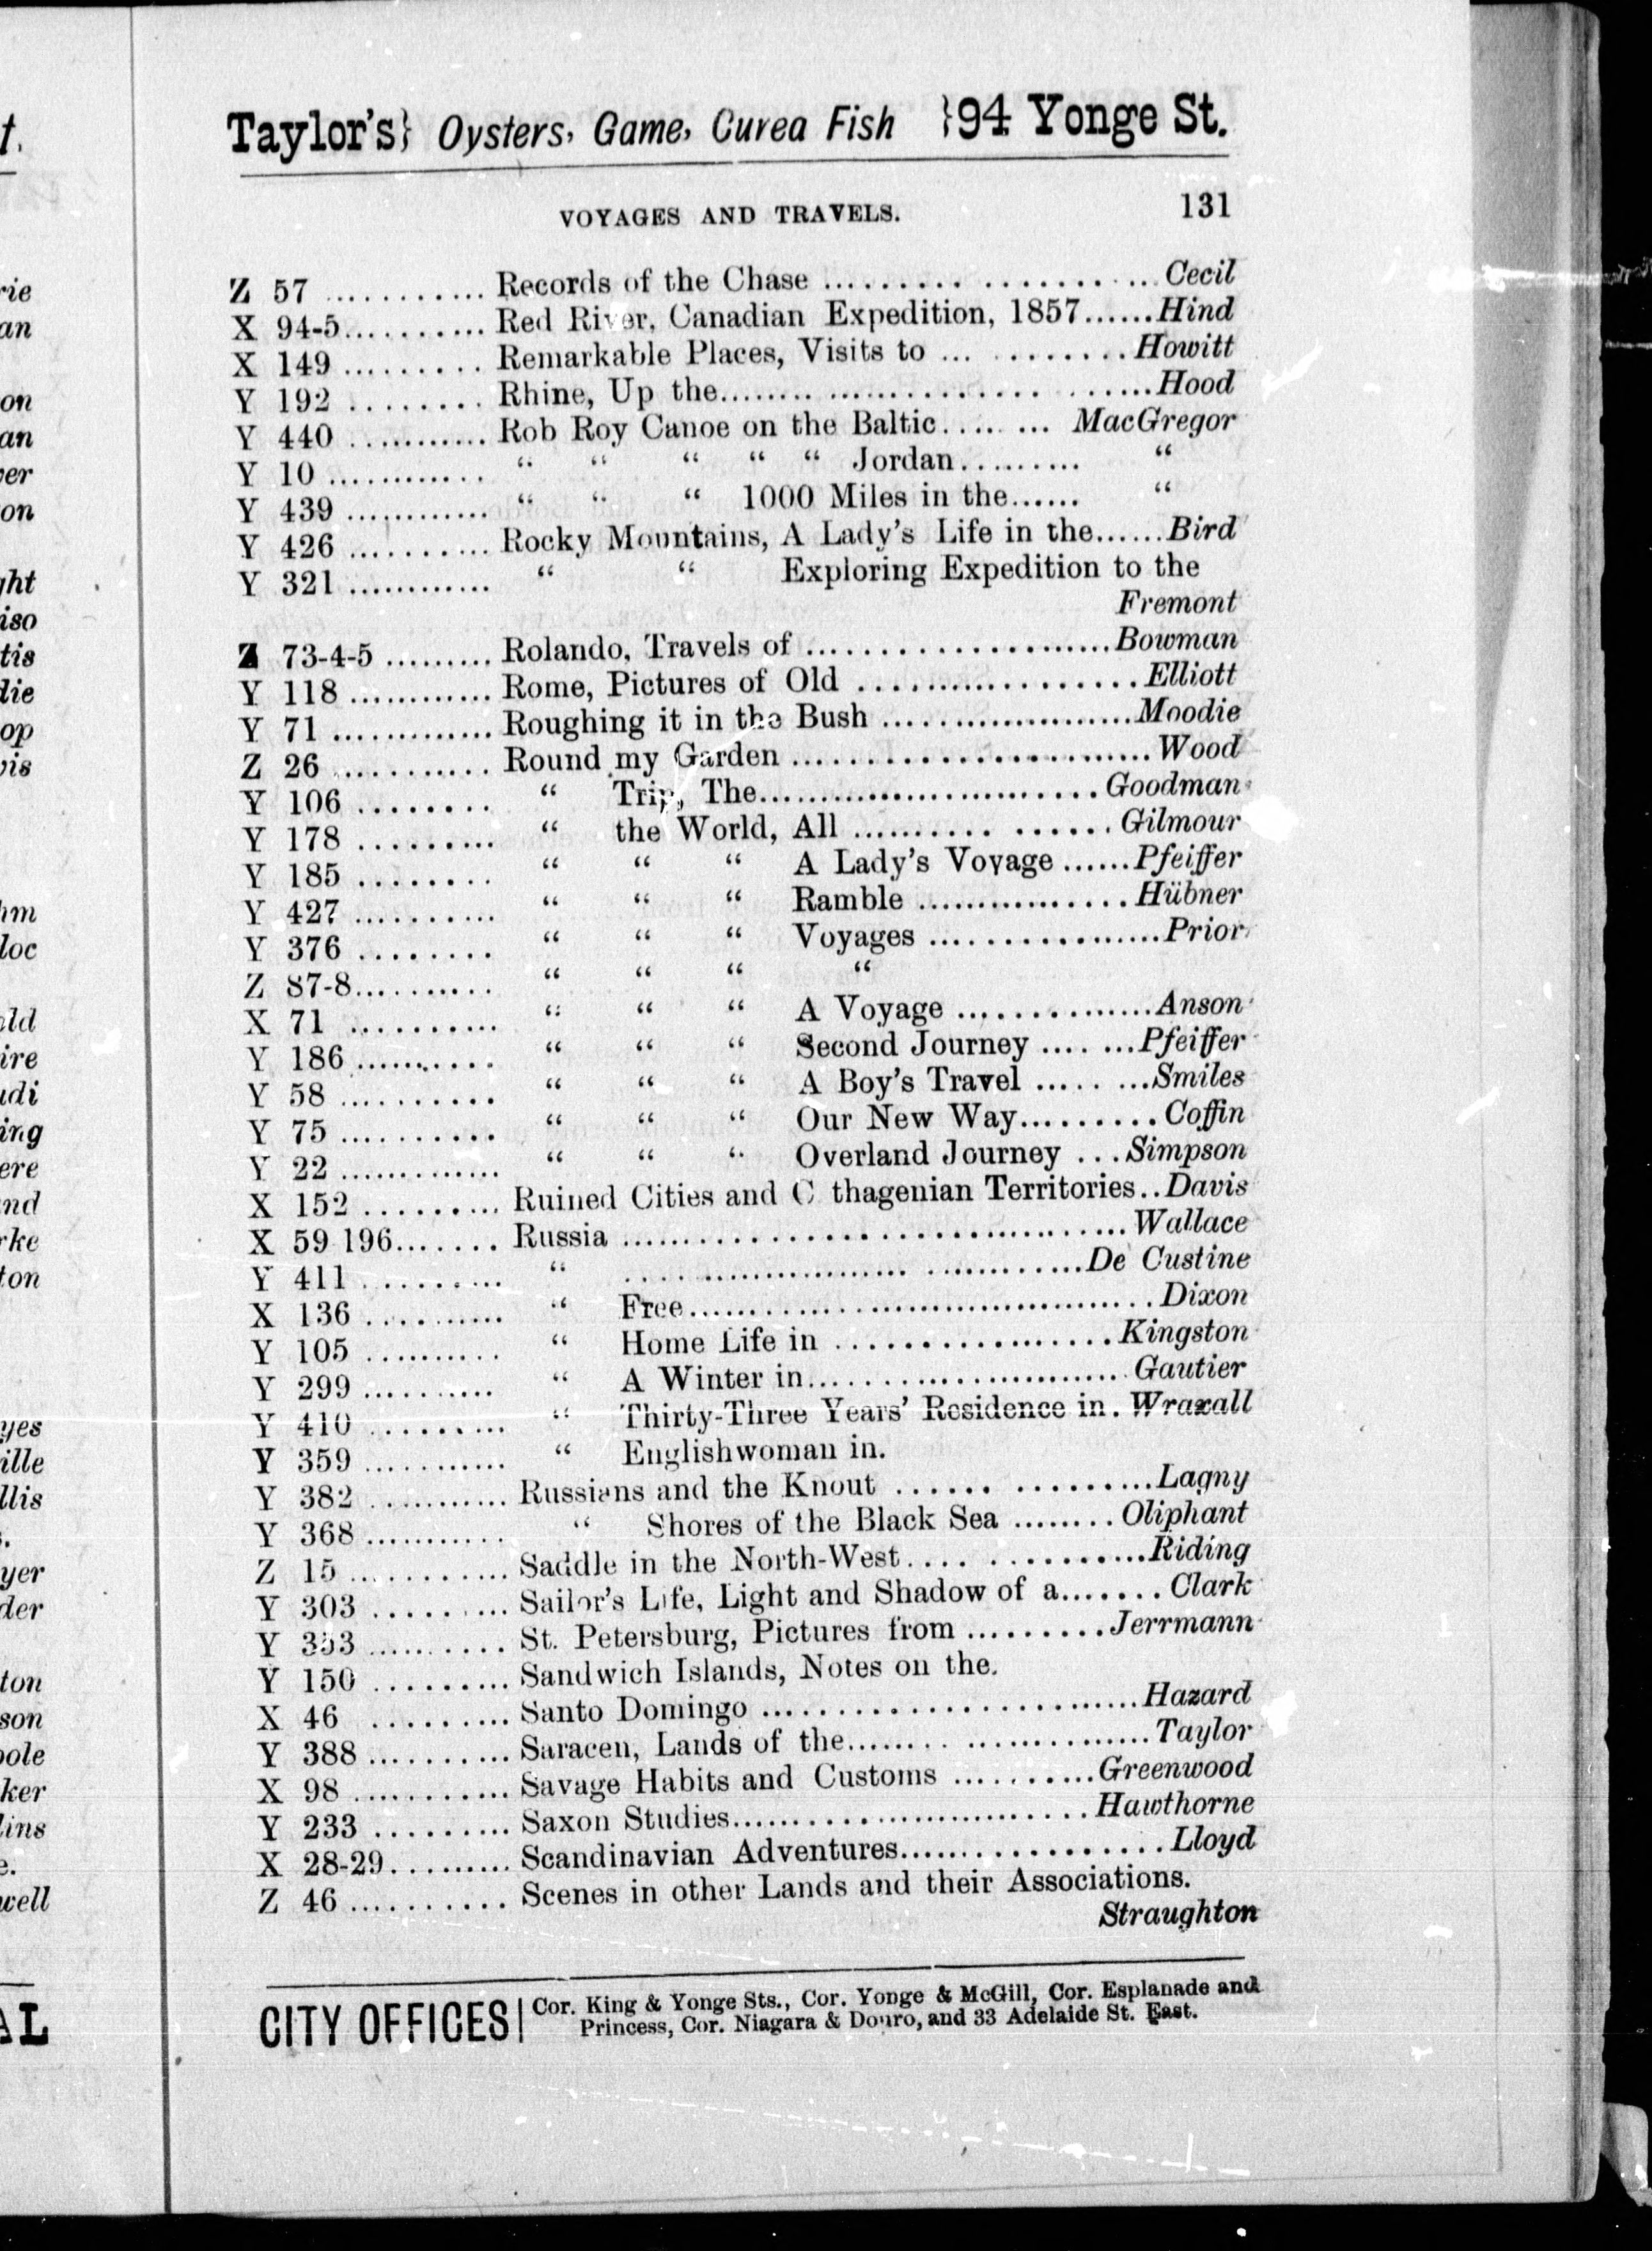 Taylor's} Oysters, Game, Curea Fish }94 Yonge St.
VOYAGES AND TRAVELS. 131
Z 57 ........... Records of the Chase .................... Cecil
X 94-5.......... Red River, Canadian Expedition, 1857......Hind
X 149 ......... Remarkable Places, Visits to ... ......... Howitt
Y 192 ........ Rhine, Up the............................ Hood
Y 440 ........... Rob Roy Canoe on the Baltic........ MacGregor
Y 10 ............ “ “ “ “ “ Jordan.......... “
Y 439 ............ “ “ “ 1000 Miles in the...... “
Y 426 .......... Rocky Mountains, A Lady's Life in the......Bird
Y 321 ............ “ “ Exploring Expedition to the
Fremont
Z 73-4-5 ......... Rolando, Travels of ......................Bowman
Y 118 ............ Rome, Pictures of Old ....................Elliott
Y 71 ............. Roughing it in the Bush ..................Moodie
Z 26 ........... Round my Garden ..........................Wood
Y 106 ........ “ Trip, The.........................Goodman
Y 178 .......... “ the World, All .......... ......Gilmour
Y 185 ........ “ “ “ A Lady's Voyage ......Pfeiffer
Y 427 .......... “ “ “ Ramble ................Hübner
Y 376 ........ “ “ “ Voyages .................Prior
Z 87-8.......... “ “ “ “
X 71 .......... “ “ “ A Voyage ...............Anson
Y 186 .......... “ “ “ Second Journey .... ...Pfeiffer
Y 58 .......... “ “ “ A Boy's Travel ..... ...Smiles
Y 75 .......... “ “ “ Our New Way..........Coffin
Y 22 ............. “ “ “ Overland Journey ...Simpson
X 152 .......... Ruined Cities and C thagenian Territories..Davis
X 59 196....... Russia ....................................Wallace
Y 411 .......... “ ....................................De Custine
X 136 .......... “ Free..................................Dixon
Y 105 .......... “ Home Life in .....................Kingston
Y 299 .......... “ A Winter in........................Gautier
Y 410 .......... “ Thirty-Three Years' Residence in. Wraxall
Y 359 ........... “ Englishwoman in.
Y 382 ........... Russians and the Knout ...... ..........Lagny
Y 368 ........... “ Shores of the Black Sea ........Oliphant
Z 15 ............ Saddle in the North-West.... ...........Riding
Y 303 .......... Sailor's Life, Light and Shadow of a.......Clark
Y 353 .......... St. Petersburg, Pictures from .........Jerrmann
Y 150 .......... Sandwich Islands, Notes on the.
X 46 ......... Santo Domingo .........................Hazard
Y 388 .......... Saracen, Lands of the......................Taylor
X 98 ........... Savage Habits and Customs ..........Greenwood
Y 233 ......... Saxon Studies.........................Hawthorne
X 28-29......... Scandinavian Adventures..................Lloyd
Z 46 .......... Scenes in other Lands and their Associations.
Straughton
CITY OFFICES | Cor. King & Yonge Sts., Cor. Yonge & McGill, Cor. Esplanade and
Princess, Cor. Niagara & Douro, and 33 Adelaide St. East.